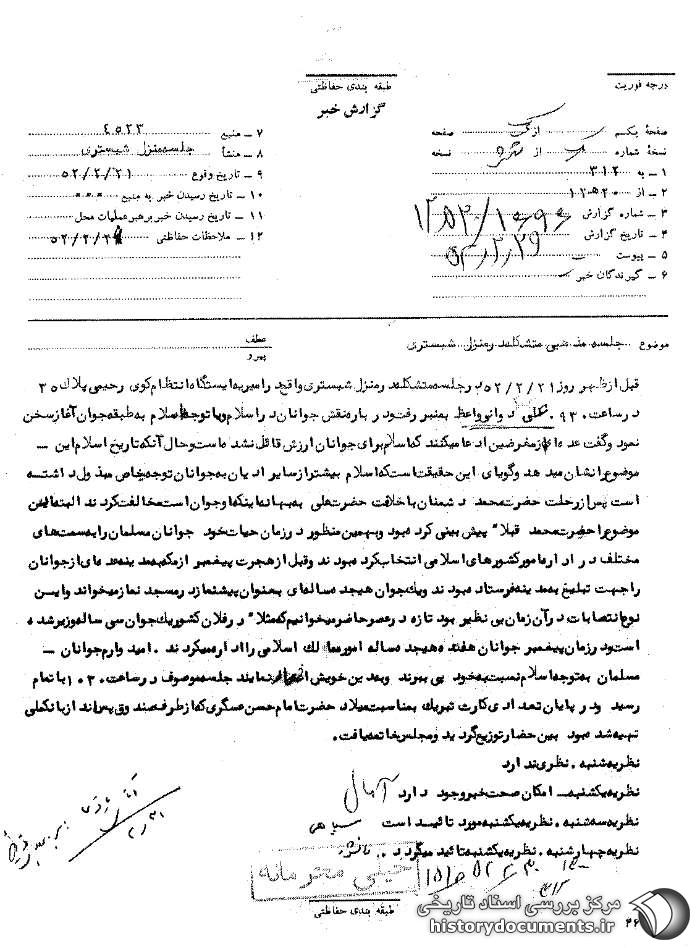 درجه فوریت
طبقه بندی حفاظتی
گزارش خبر
صفحه یکم از صفحه
نسخه شماره از نسخه
۱ - به ۳۱۲
۲ - از ۱۲۵۲۰
۳ - شماره گزارش
۴ - تاریخ گزارش ۵۲٫۲٫۲۹
۵ - پیوست
۶ - گیرندگان خبر
۷ - منبع ۴۵۲۳
۸ - منشأ جلسه منزل شبستری
۹ - تاریخ وقوع ۵۲/۲/۲۱
۱۰ - تاریخ رسیدن خبر به منبع ۰۰۰
۱۱ - تاریخ رسیدن خبر برهبر عملیات محل
۱۲ - ملاحظات حفاظتی
موضوع جلسه مذهبی متشکله در منزل شبستری
عطف
پیرو
قبل از ظهر روز ۵۲/۲/۲۱ در جلسه متشکله در منزل شبستری واقع در امیریه ایستگاه انتظام کوی رحیمی پلاک ۳۵
در ساعت ۹۳۰ نکلی دوانی واعظ به منبر رفت و درباره نقش جوانان در اسلام و یا توجه اسلام به طبقه جوان آغاز سخن
نمود و گفت عده ای از مغرضین ادعا میکنند که اسلام برای جوانان ارزش قائل نشده است و حال آنکه تاریخ اسلام این -
موضوع را نشان میدهد و گویای این حقیقت است که اسلام بیشتر از سایر ادیان به جوانان توجه خاص مبذول داشته
است پس از رحلت حضرت محمد دشمنان با خلافت حضرت علی به بهانه اینکه او جوان است مخالفت کردند البته این
موضوع را حضرت محمد قبلا" پیش بینی کرده بود و بهمین منظور در زمان حیات خود جوانان مسلمان را به سمت های
مختلف در اداره امور کشورهای اسلامی انتخاب کرده بودند و قبل از هجرت پیغمبر از مکه به مدینه عده ای از جوانان
را جهت تبلیغ به مدینه فرستاده بودند و یک جوان هیجده ساله ای بعنوان پیشنماز در مسجد نماز میخواند و این
نوع انتصابات در آن زمان بی نظیر بود تازه در عصر حاضر میخوانیم که مثلا" در فلان کشور یک جوان سی ساله وزیر شده
است و در زمان پیغمبر جوانان هفده هیجده ساله امور ممالک اسلامی را اداره میکردند . امیدوارم جوانان -
مسلمان به توجه اسلام نسبت به خود پی ببرند و به دین خویش نمایند جلسه موصوف در ساعت ۱۰۳۰ با تمام
رسید و در پایان تعدادی کارت تبریک بمناسبت میلاد حضرت امام حسن عسگری که از طرف صندوق پس انداز بانکلی
تهیه شده بود بین حضار توزیع گردید و مجلس خاتمه یافت.
نظریه شنبه . نظری ندارد
نظریه یکشنبه - امکان صحت خبر وجود دارد آبسال
نظریه سه شنبه . نظریه یکشنبه مورد تائید است سپاهی
نظریه چهارشنبه . نظریه یکشنبه تائید میگردد .
خیلی محرمانه
۳۱۲
طبقه بندی حفاظتی
۴۶
مرکز بررسی اسناد تاریخی
historydocuments.ir